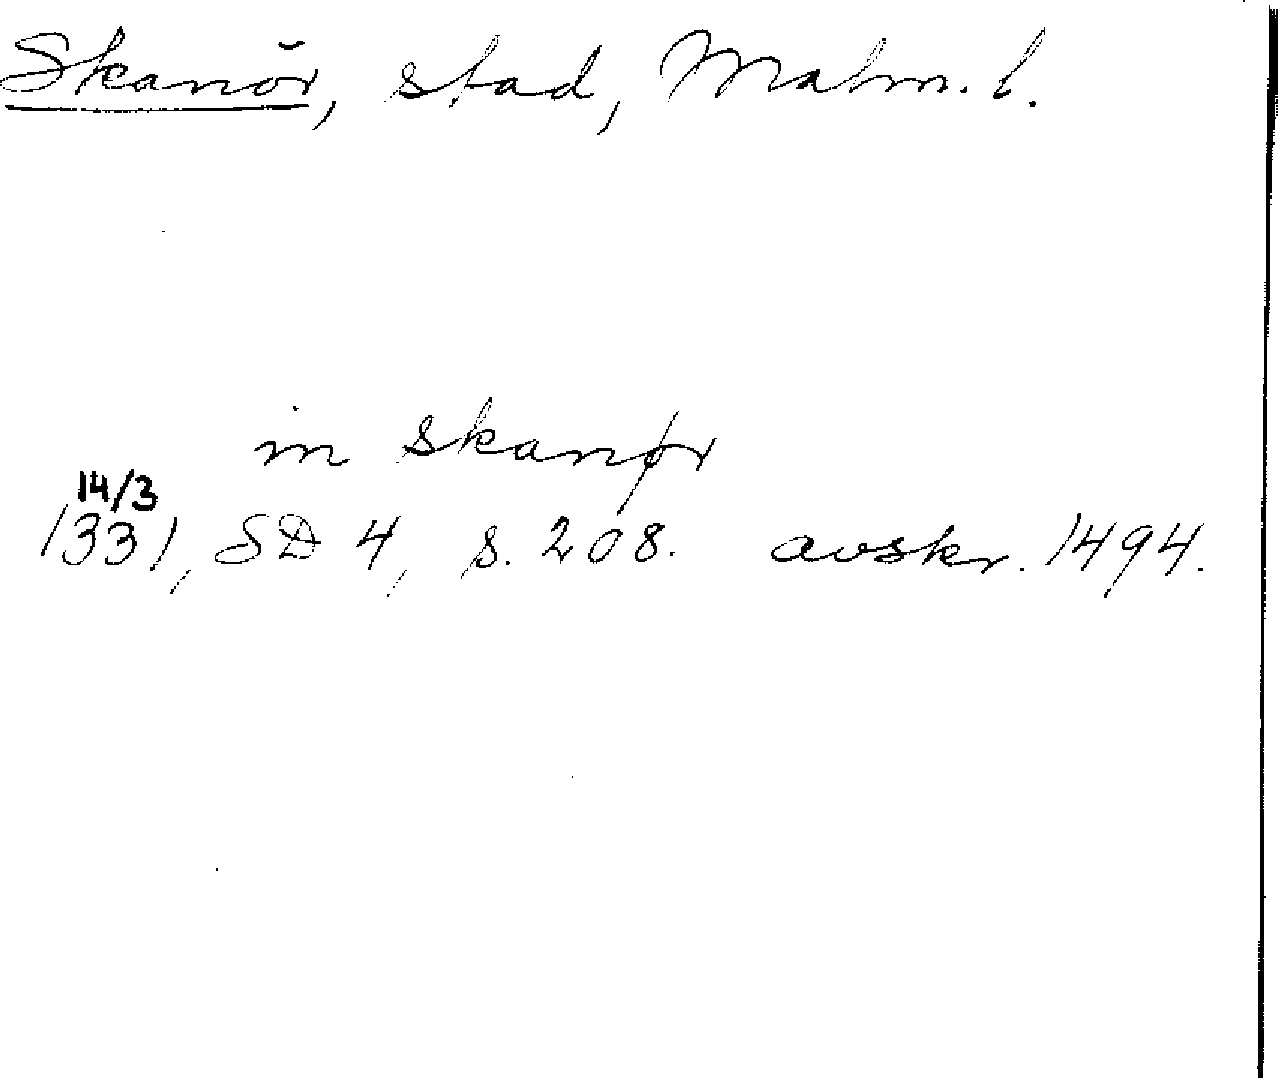 Skanör, stad, Malm. l.
in skanør
14/3
1331, SD 4, s. 208. avskr. 1494.